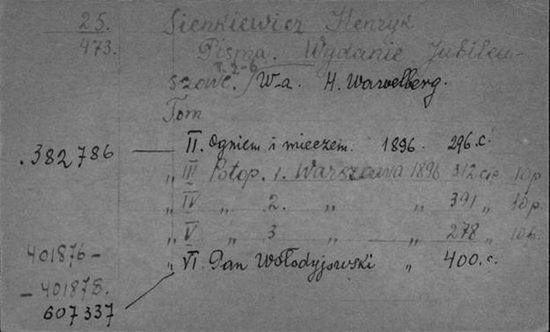 25.
473.
Sienkiewicz Henryk
Pisma. Wydanie Jubileu-
szowe. / W-a. H. Wawelberg.
T. 2-6
Tom
.382786 — II. Ogniem i mieczem. 1896. 296.c.
„ III Potop. 1. Warszawa 1896 312 cie 10p
„ IV „ 2. „ „ 391 „ 10p.
„ V „ 3 „ — „ 278 „ 10p.
„ VI. Pan Wołodyjowski „ 400.c.
401876 -
- 401878.
607337